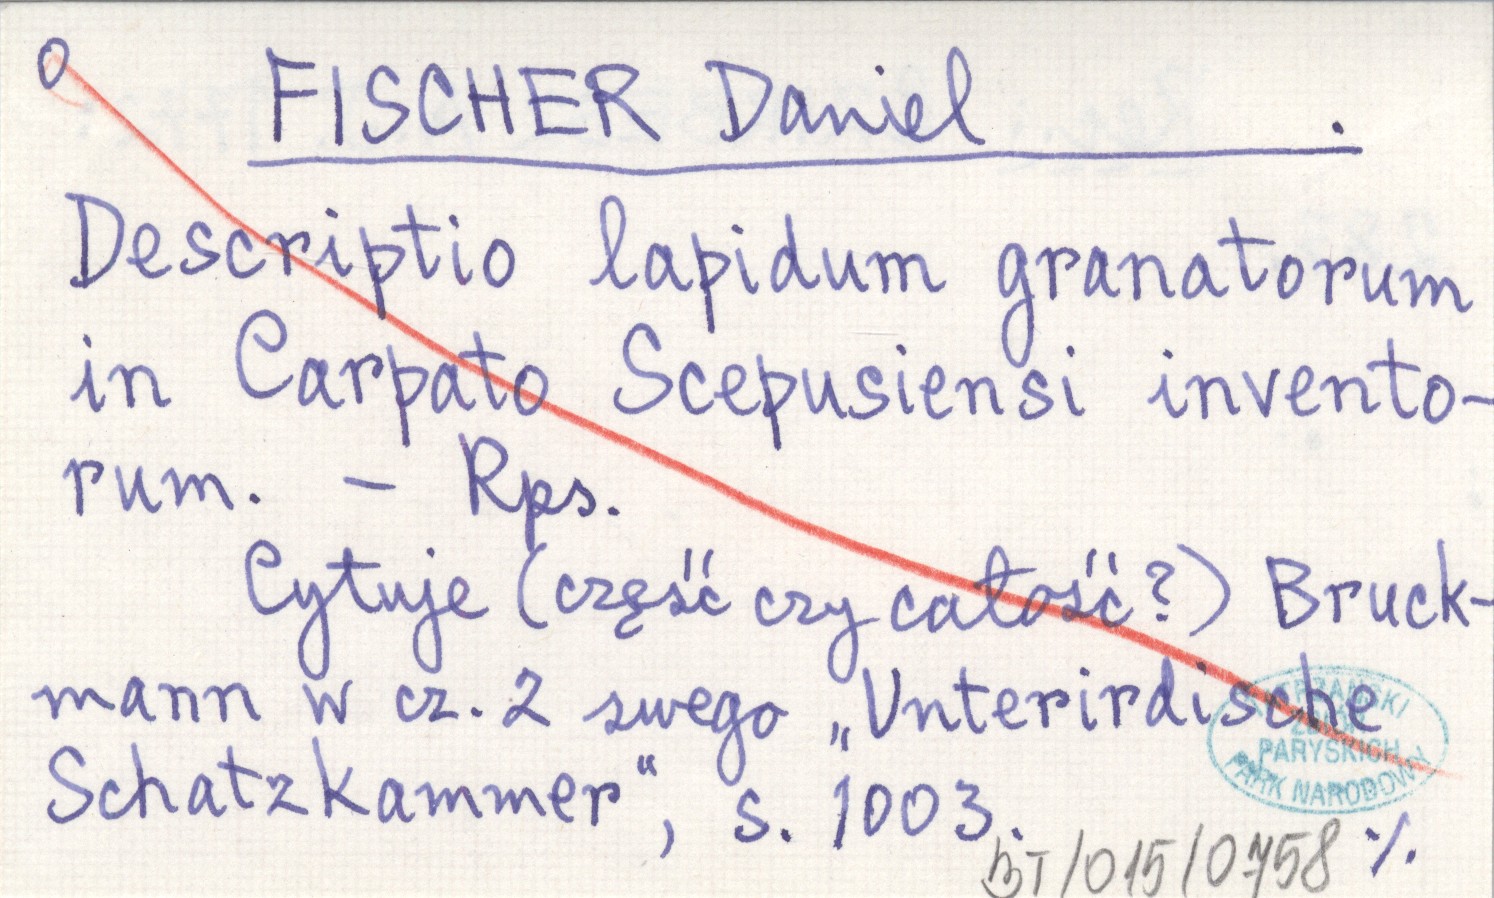 O FISCHER Daniel .
Descriptio lapidum granatorum
in Carpato Scepusiensi invento-
rum. – Rps.
Cytuje (część czy całość?) Bruck-
mann w cz. 2 swego „Unterirdische
Schatzkammer“, s. 1003.
TATRZAŃSKI
ZBIORY
PARYSKICH
PARK NARODOWY
BT/015/0758 ·/.